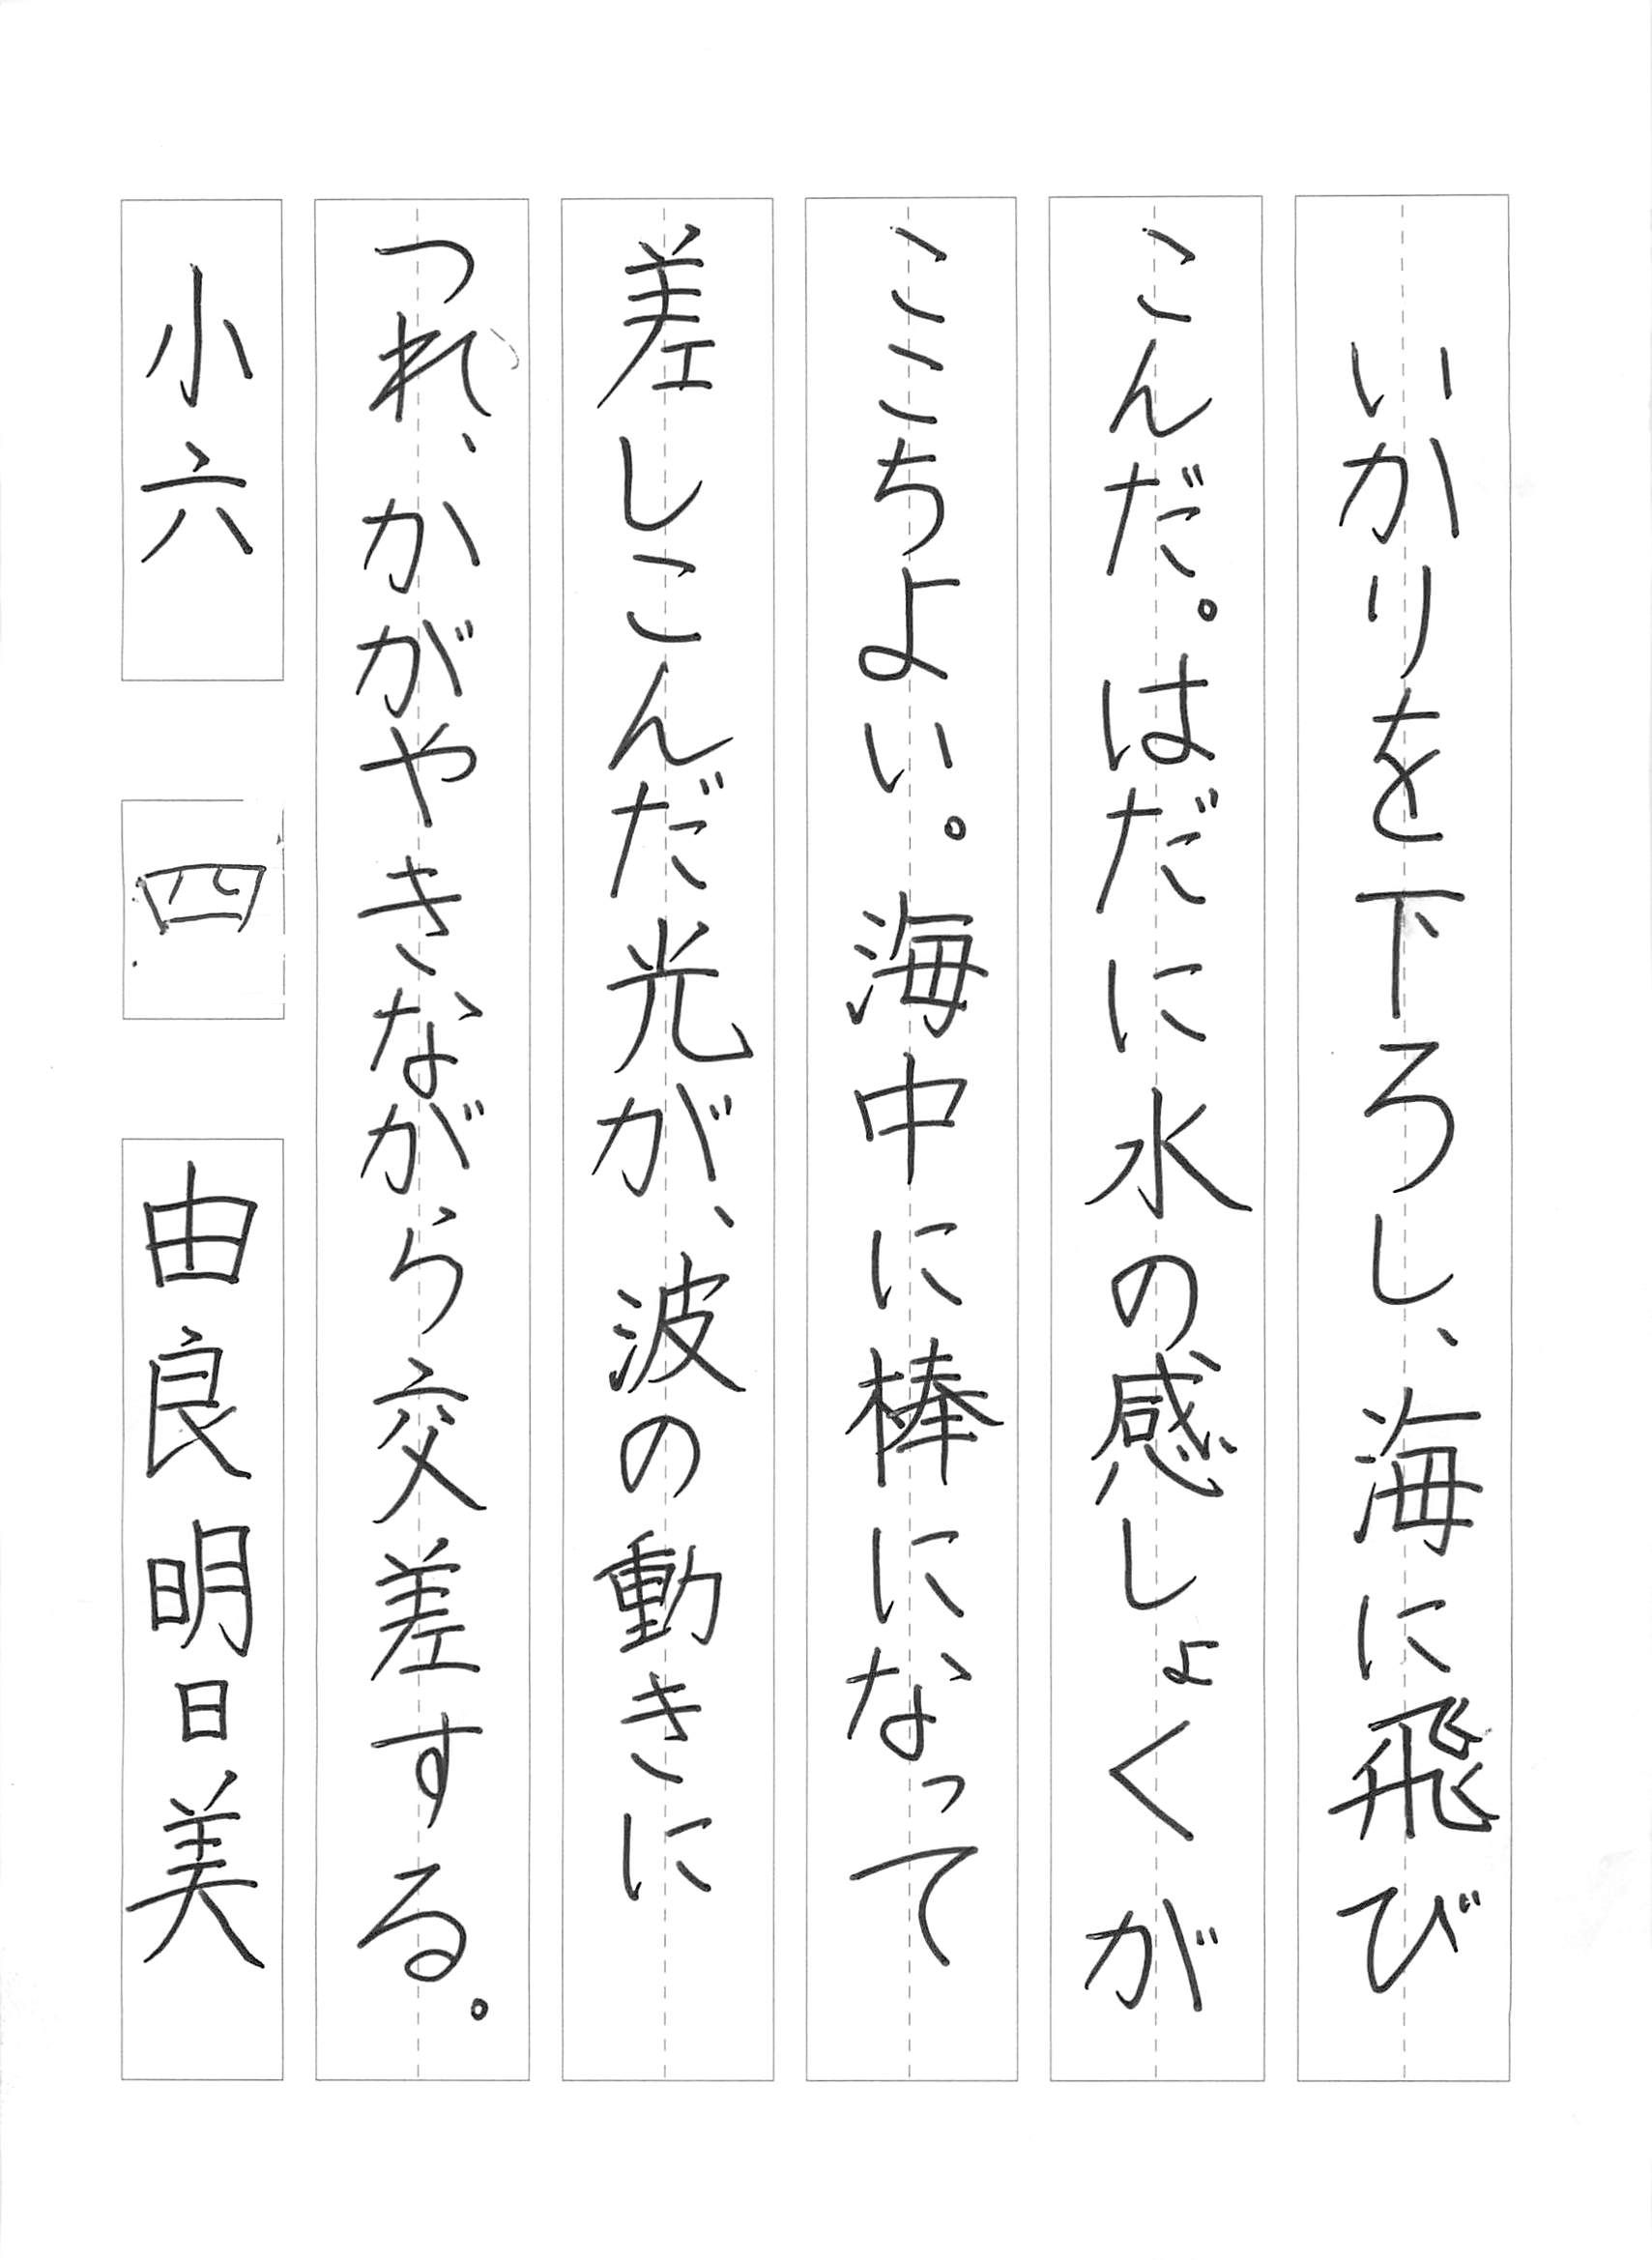 いかりを下ろし、海に飛び
こんだ。はだに水の感しょくが
ここちよい。海中に棒になって
差しこんだ光が、波の動きに
つれ、かがやきながら交差する。
小六 四 由良明日美